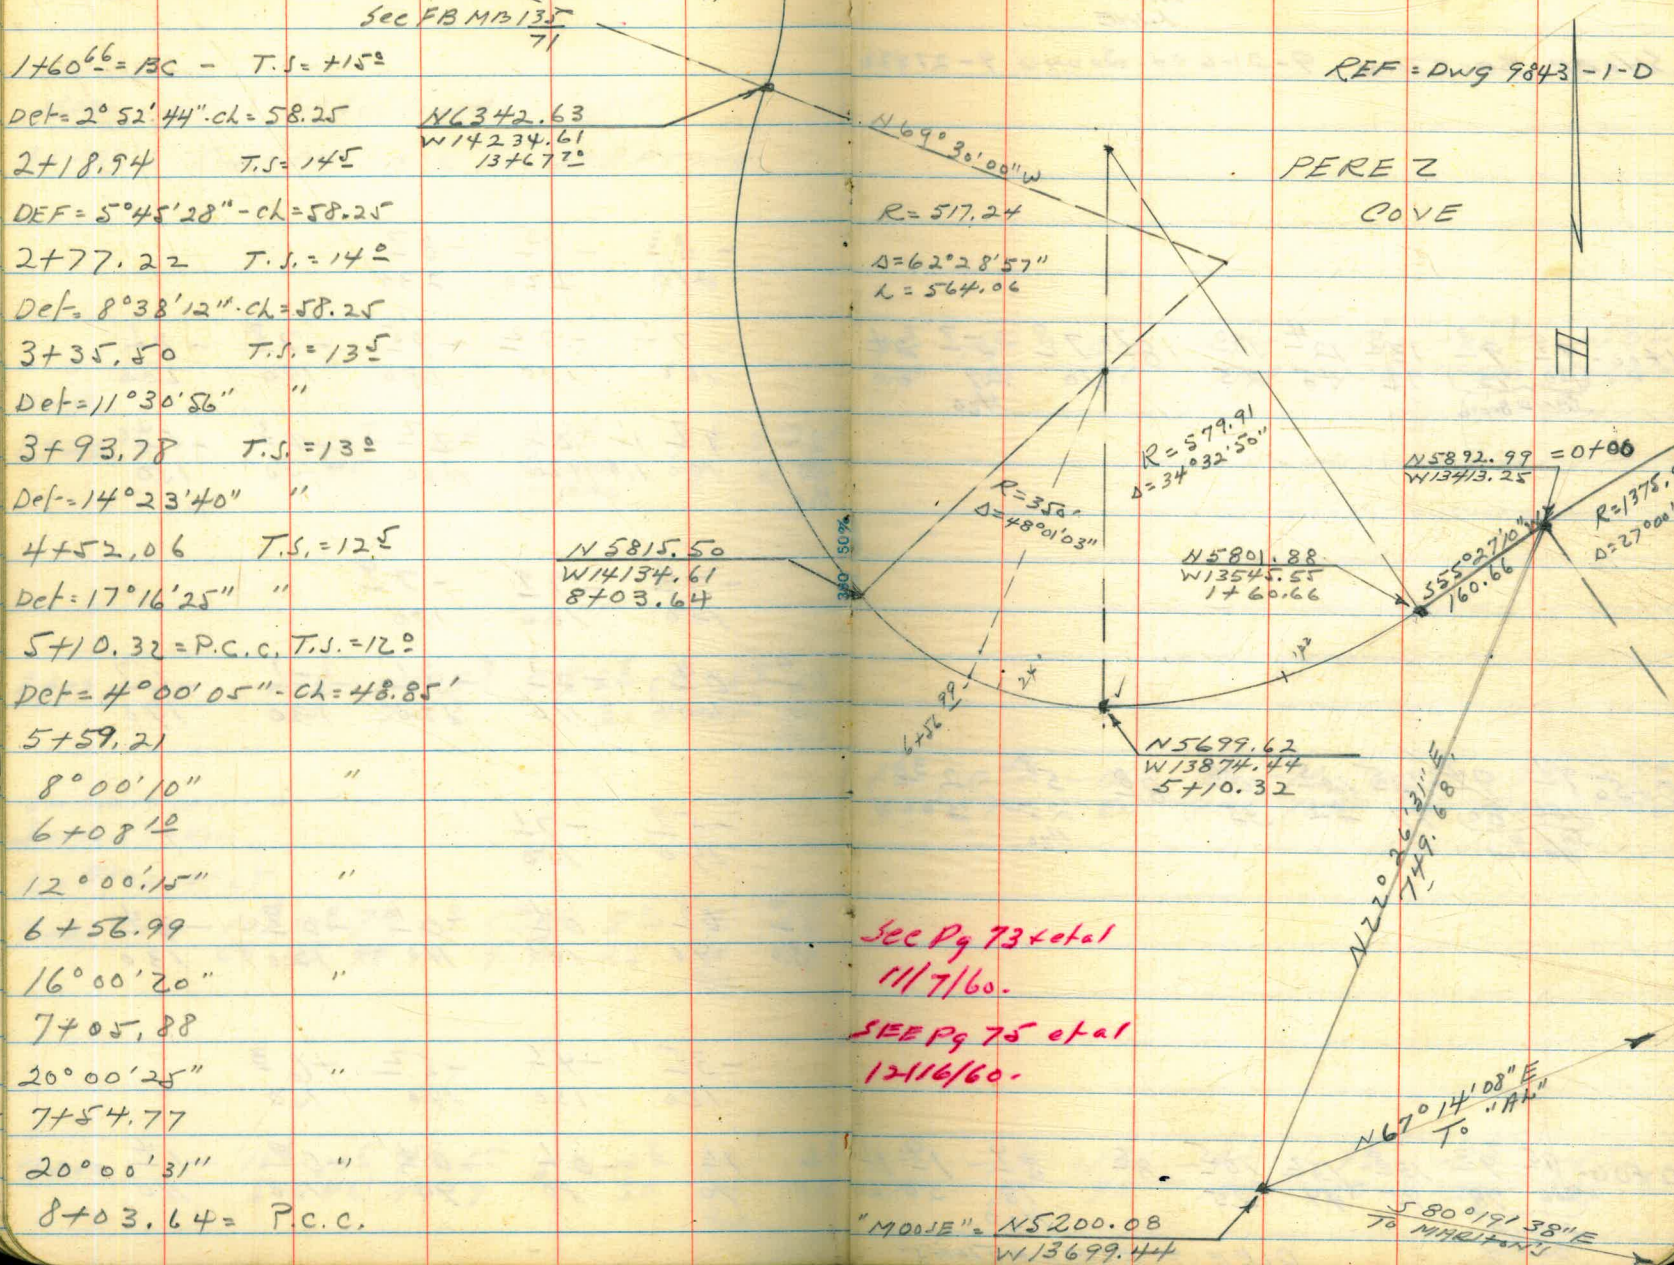 See FB MB 135
71
1+60 66 = BC - T.S = +15 0
Def = 2° 52' 44" - ch = 58.25
2+18.94 T.S = 14 5
DEF = 5° 45' 28" - ch = 58.25
2+77.22 T.S. = 14 0
Def = 8° 38' 12" - ch = 58.25
3+35.50 T.S. = 13 5
Def = 11° 30' 56" "
3+93.78 T.S. = 13 0
Def = 14° 23' 40" "
4+52.06 T.S. = 12.5
Def = 17° 16' 25" "
5+10.32 = P.C.C. T.S. = 12 0
Def = 4° 00' 05" - Ch = 48.85'
5+59.21
8° 00' 10" "
6+08 10
12° 00' 15" "
6+56.99
16° 00' 20" "
7+05.88
20° 00' 25" "
7+54.77
20° 00' 31" "
8+03.64 = P.C.C.
N6342.63
W14234.61
13+67 70
N5815.50
W14134.61
8+03.64
REF = DWG 9843-1-D
PEREZ
COVE
N69° 30' 00" W
R = 517.24
Δ = 62° 28' 57"
L = 564.06
R = 579.91
Δ = 34° 32' 50"
R = 350'
Δ = 48° 01' 03"
N5892.99 = 0+00
W13413.25
R = 1375.
Δ = 27° 00'
N5801.88
W13545.55
1+60.66
S55° 27' 10" W
160.66
380 50%
24'
6+56 99
N5699.62
W13874.44
5+10.32
N22° 26' 31" E.
749.68
See Pg 73 + etal
11/7/60.
SEE Pg 75 etal
12/16/60.
N67° 14' 08" E
To "AL"
S 80° 19' 38" E
To
"MOOSE" = N5200.08
W13699.44